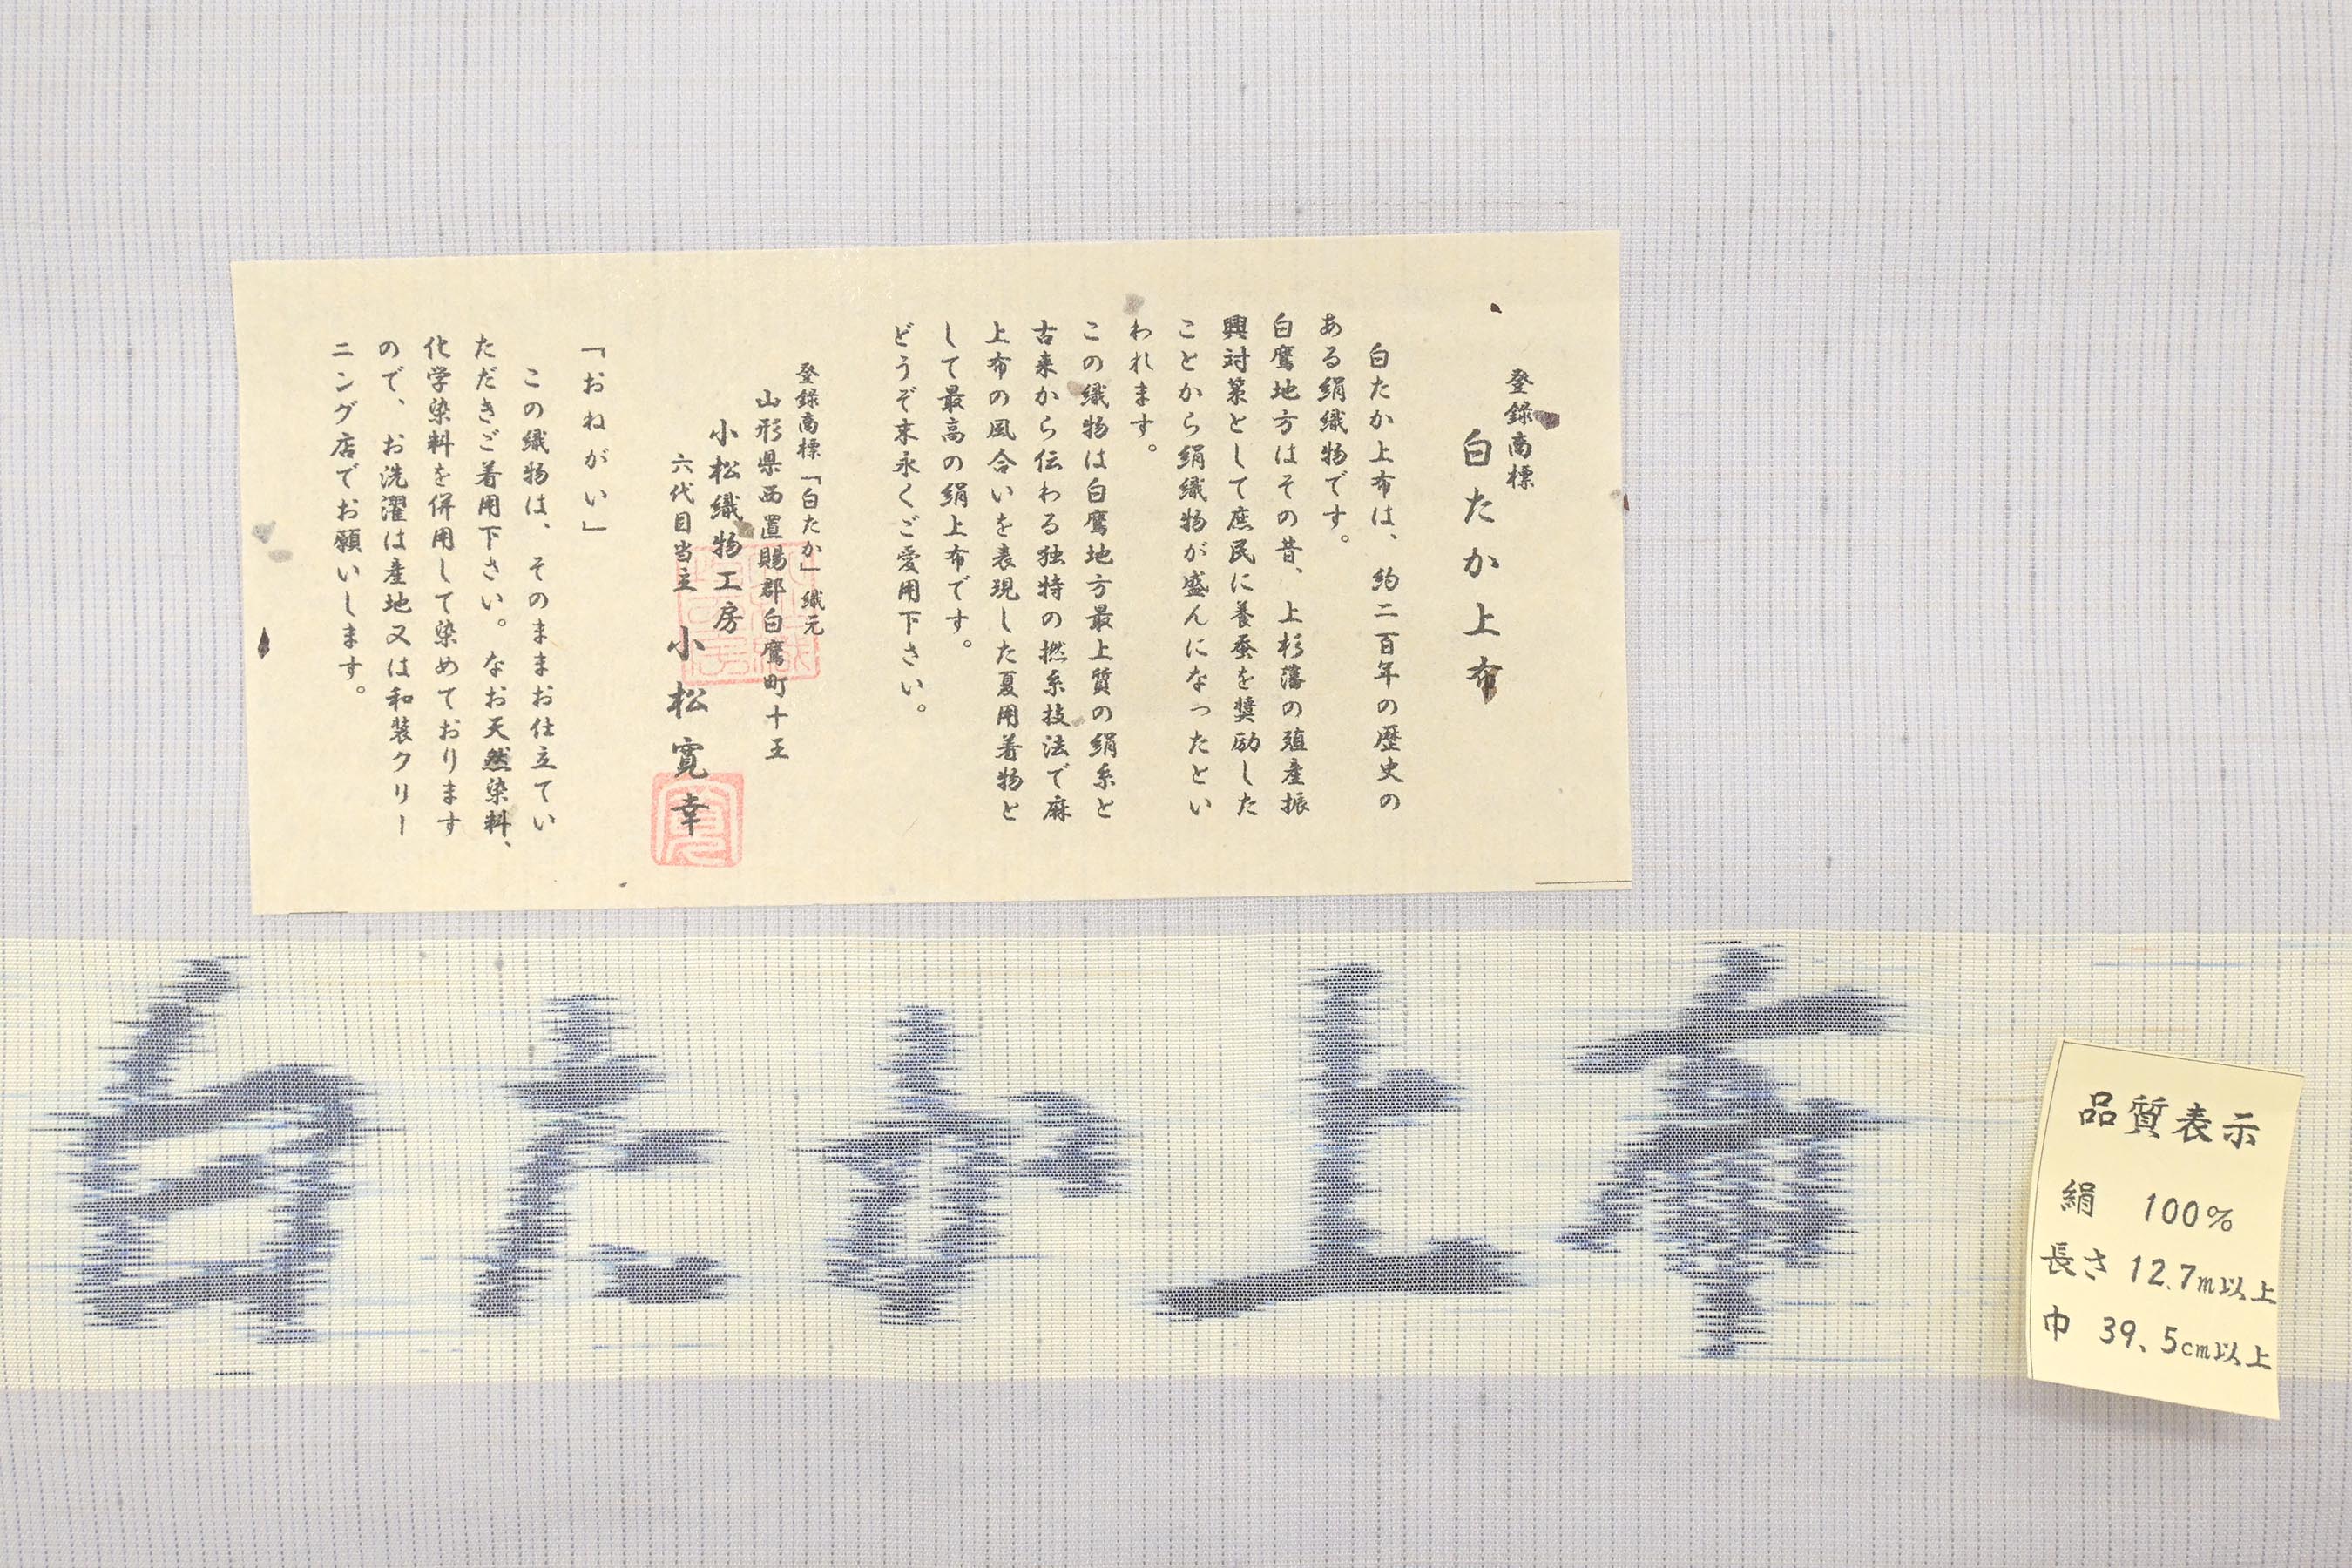 登録商標
白たか上布
白たか上布は、約二百年の歴史の
ある絹織物です。
白鷹地方はその昔、上杉藩の殖産振
興対策として庶民に養蚕を奨励した
ことから絹織物が盛んになったとい
われます。
この織物は白鷹地方最上質の絹糸と
古来から伝わる独特の撚糸技法で麻
上布の風合いを表現した夏用着物と
して最高の絹上布です。
どうぞ末永くご愛用下さい。
登録商標「白たか」織元
山形県西置賜郡白鷹町十王
小松織物工房
六代目当主 小松寛幸
「おねがい」
この織物は、そのままお仕立てい
ただきご着用下さい。なお天然染料、
化学染料を併用して染めております
ので、お洗濯は産地又は和装クリー
ニング店でお願いします。
白たか上布
品質表示
絹 100%
長さ 12.7m以上
巾 39.5cm以上